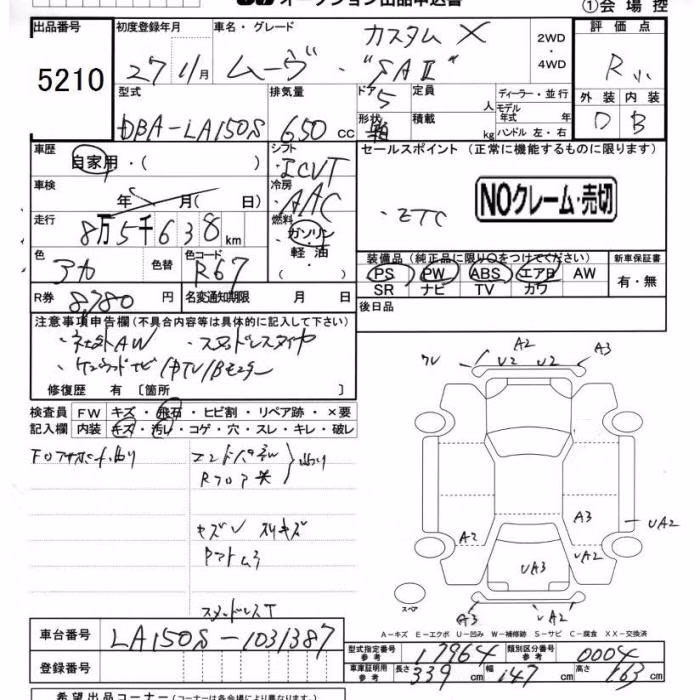 オークション出品申込書
①会場控
出品番号 初度登録年月 車名・グレード 評価点
5210 27 11月 ムーヴ カスタム X "SAⅡ" 2WD・4WD R
型式 排気量 ドア 5 定員 人 ディーラー・並行 外装 内装
DBA-LA150S 650 cc 形状 積載 kg モデル年式 年 ハンドル 左・右 D B
車歴 自家用・( ) シフト ・ICVT セールスポイント (正常に機能するものに限ります)
車検 年 月( 日) 冷房 ・AAC NOクレーム・売切
走行 8万5千638km 燃料 ガソリン 軽油 ・( ) ・ETC
色 アカ 色替 色コード R67 装備品(純正品に限り○をつけてください) 新車保証書
PS PW ABS エアB AW 有・無
SR ナビ TV カワ
R券 8,780円 名変通知期限 月 日 後日品
注意事項申告欄(不具合内容等は具体的に記入して下さい)
・社外AW ・スタッドレスタイヤ
・ケンウッドナビ/中TV/Bモニター
修復歴 有 〔箇所 〕
検査員 FW キズ・飛石・ヒビ割・リペア跡・×要
記入欄 内装 キズ・汚れ・コゲ・穴・スレ・キレ・破レ
Rフロア
キズ スリキズ
スタッドレスT
A2 A3
U2 U2
A3 UA2
A2 UA2
UA3
A3 UA2
スペア
A-キズ E-エクボ U-凹み W-補修跡 S-サビ C-腐食 XX-交換済
車台番号 LA150S-1031387
登録番号
型式指定番号 参考 17964 類別区分番号 参考 0004
車庫証明用 参考 長さ 339cm 幅 147cm 高さ 163cm
希望出品コーナー(コーナーは各会場により異なります)